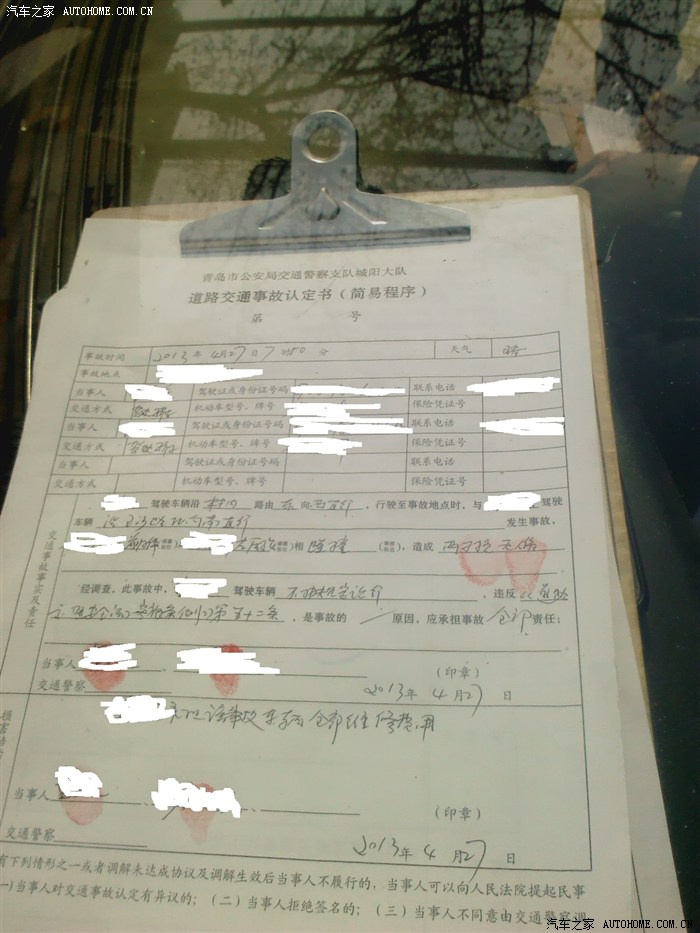 汽车之家 AUTOHOME.COM.CN
青岛市公安局交通警察支队城阳大队
道路交通事故认定书(简易程序)
第 号
事故时间 2013年4月27日7时50分 天气 晴
事故地点
当事人 驾驶证或身份证号码 联系电话
交通方式 驾驶轿车 机动车型号、牌号 保险凭证号
当事人 驾驶证或身份证号码 联系电话
交通方式 驾驶轿车 机动车型号、牌号 保险凭证号
当事人 驾驶证或身份证号码 联系电话
交通方式 机动车型号、牌号 保险凭证号
交通事故事实及责任
驾驶车辆沿 路由东向西直行,行驶至事故地点时,与 驾驶
车辆 直行 发生事故,
相碰撞 ,造成 两车损无伤
经调查,此事故中, 驾驶车辆 ,违反
第五十二条,是事故的一原因,应承担事故全部责任;
当事人 (印章)
交通警察 2013年4月27日
该事故车辆全部维修费用
当事人 (印章)
交通警察 2013年4月27日
有下列情形之一或者调解未达成协议及调解生效后当事人不履行的,当事人可以向人民法院提起民事
一)当事人对交通事故认定有异议的;(二)当事人拒绝签名的;(三)当事人不同意由交通警察调
汽车之家 AUTOHOME.COM.CN